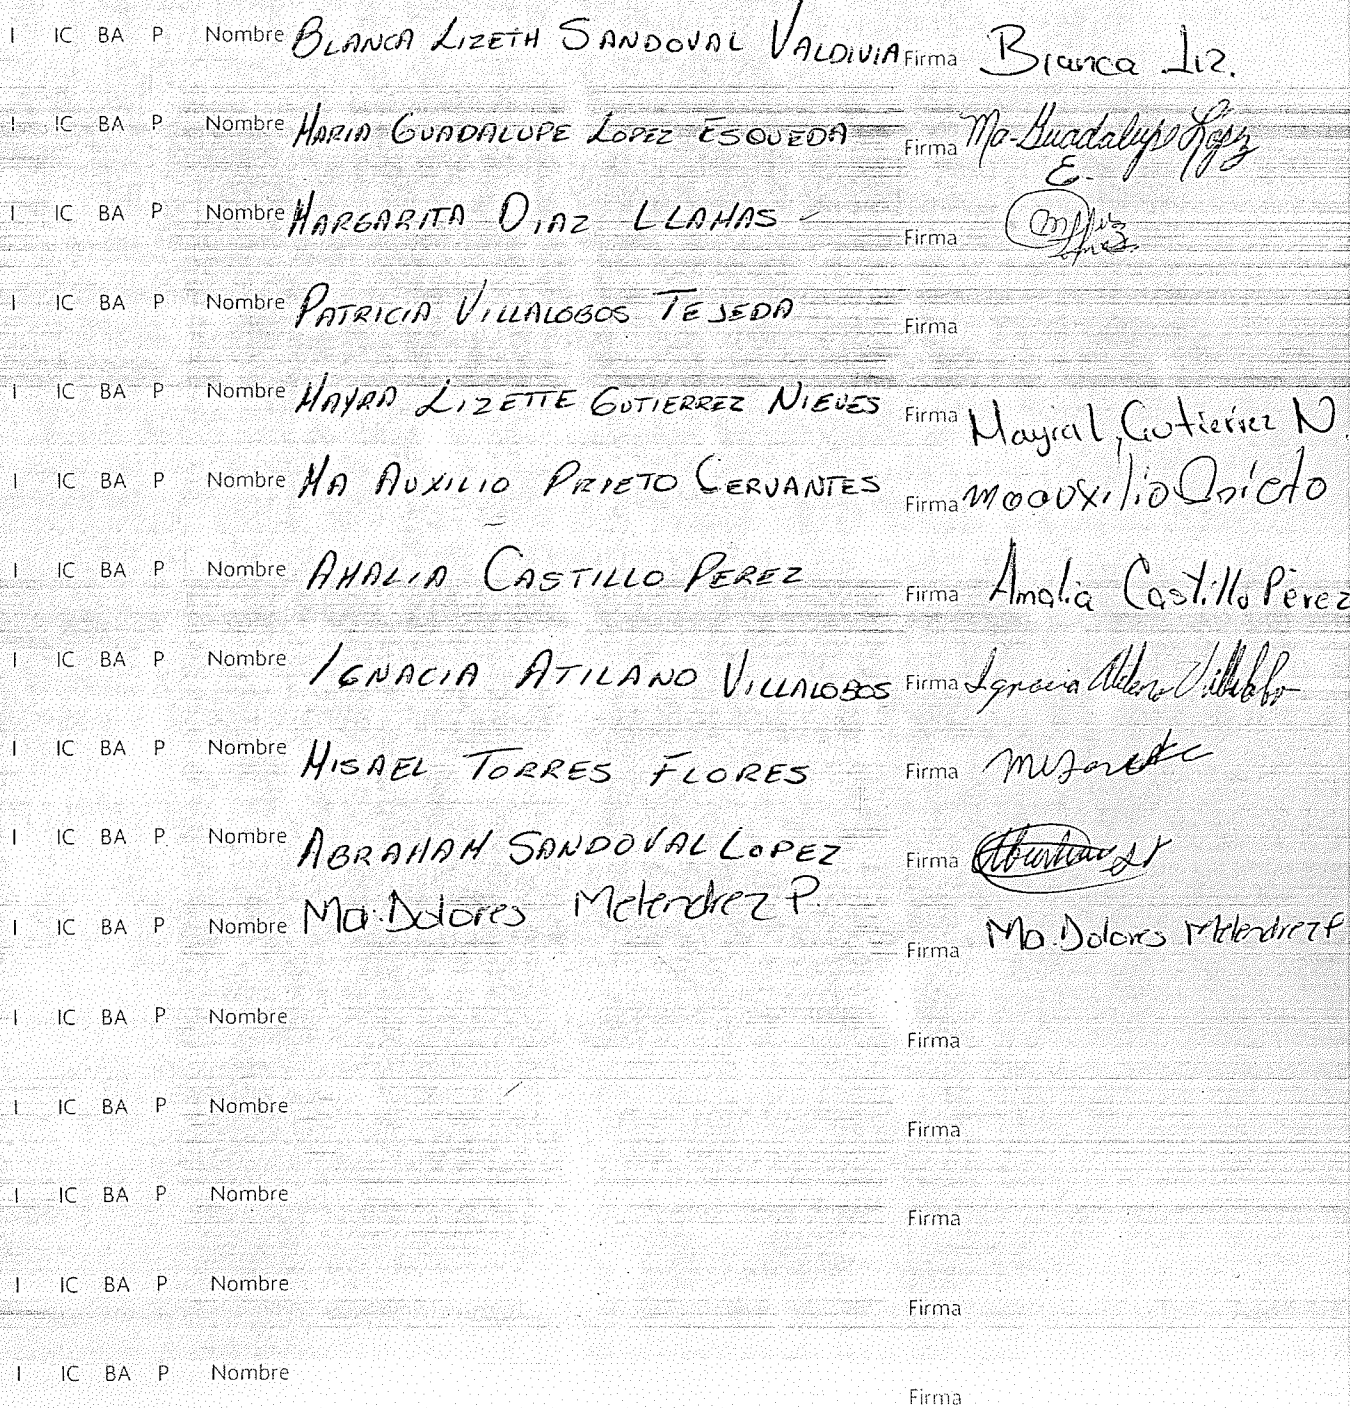 I IC BA P Nombre BLANCA LIZETH SANDOVAL VALDIVIA Firma Blanca Liz.
I IC BA P Nombre MARIA GUADALUPE LOPEZ ESQUEDA Firma Ma. Guadalupe López
E.
I IC BA P Nombre MARGARITA DIAZ LLAMAS Firma
I IC BA P Nombre PATRICIA VILLALOBOS TEJEDA Firma
I IC BA P Nombre MAYRA LIZETTE GUTIERREZ NIEVES Firma Mayra L, Gutierrez N.
I IC BA P Nombre MA AUXILIO PRIETO CERVANTES Firma ma auxilio Prieto
I IC BA P Nombre AMALIA CASTILLO PEREZ Firma Amalia Castillo Pérez
I IC BA P Nombre IGNACIA ATILANO VILLALOBOS Firma Ignacia Atilano Villalobo
I IC BA P Nombre MISAEL TORRES FLORES Firma
I IC BA P Nombre ABRAHAM SANDOVAL LOPEZ Firma
I IC BA P Nombre Ma. Dolores Melendrez P. Firma Ma. Dolores Melendrez P
I IC BA P Nombre Firma
I IC BA P Nombre Firma
I IC BA P Nombre Firma
I IC BA P Nombre Firma
I IC BA P Nombre Firma